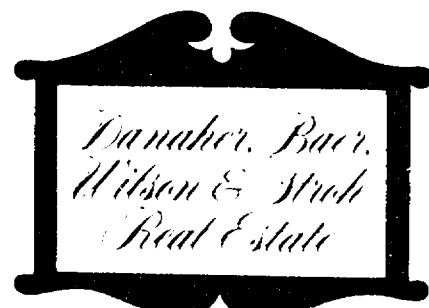 Danaher, Baer,
Wilson & Stroh
Real Estate